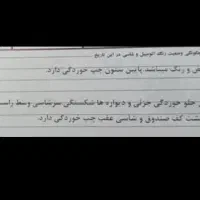 چگونگی وضعیت رنگ اتومبیل و شاسی در این تاریخ ...
ش و رنگ میباشد. پایین ستون چپ خوردگی دارد.
جلو خوردگی جزئی و دیواره ها شکستگی سرشاسی وسط راست
پشت کف صندوق و شاسی عقب چپ خوردگی دارد.